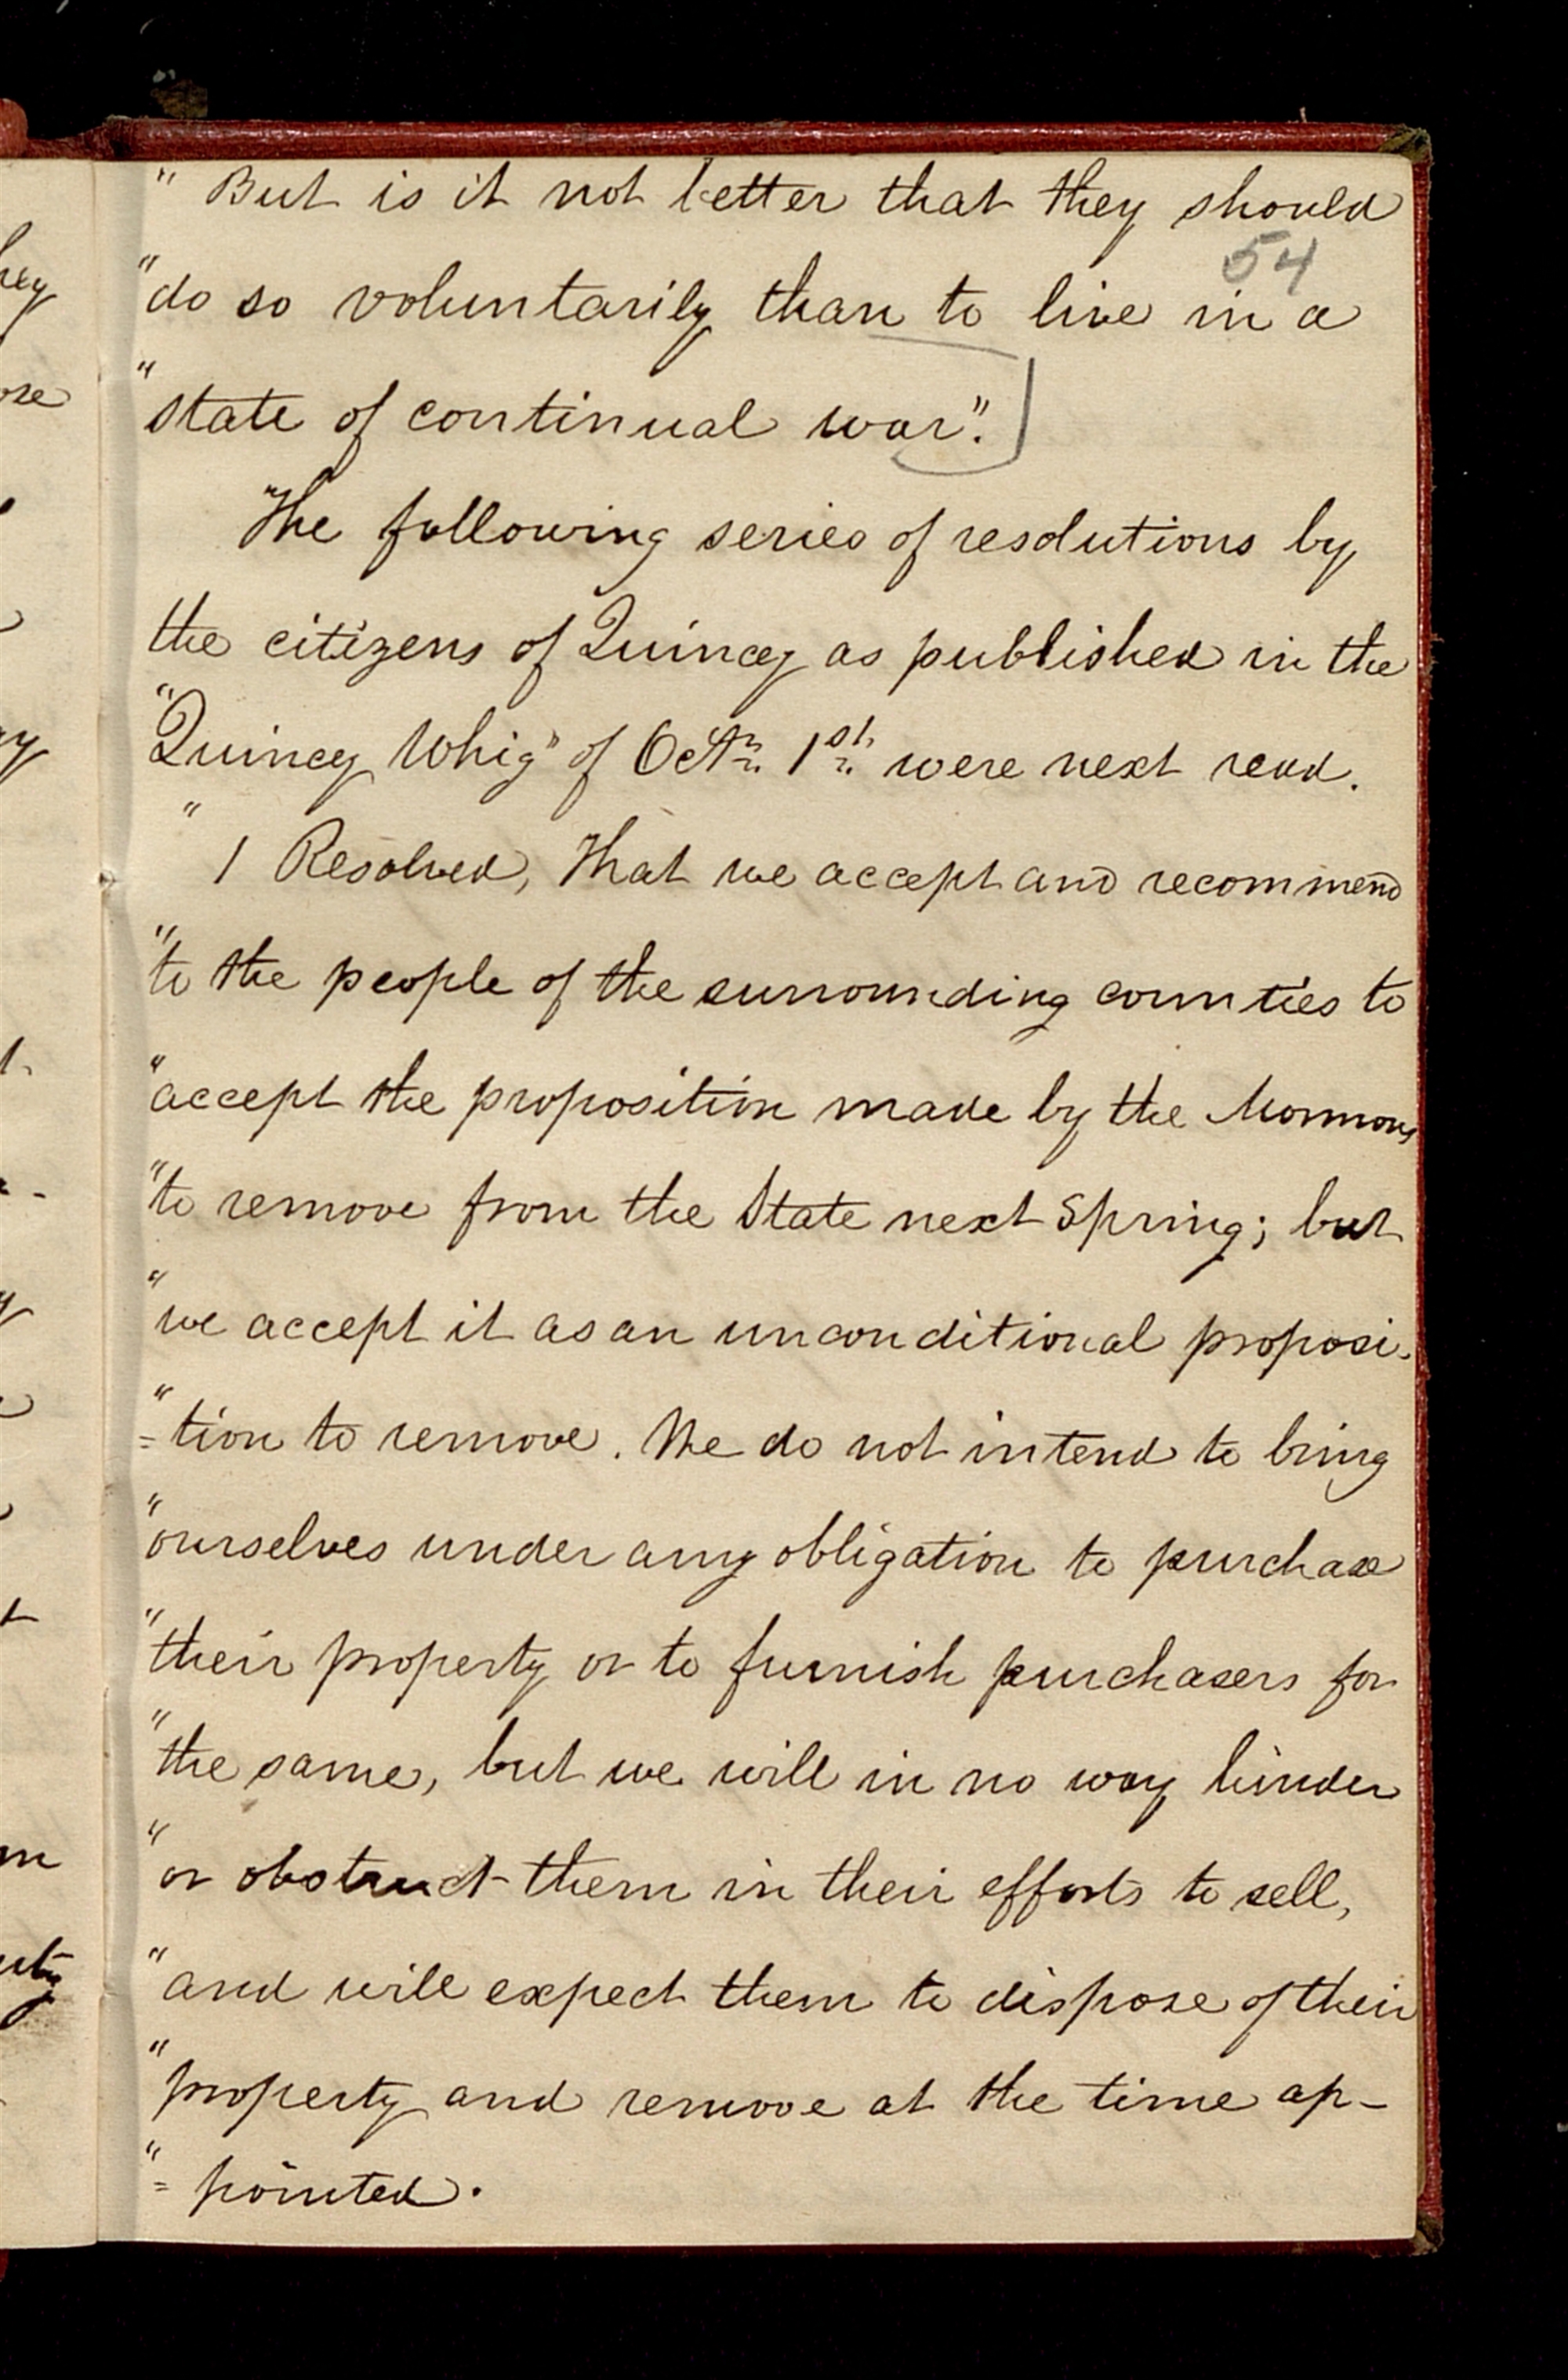 " But is it not better that they should
54
" do so voluntarily than to live in a
" state of continual war".
The following series of resolutions by
the citizens of Quincy as published in the
"Quincy Whig" of Octr. 1st. were next read.
" 1 Resolved, That we accept and recommend
" to the people of the surrounding counties to
" accept the proposition made by the Mormons
" to remove from the State next Spring; but
" we accept it as an unconditional proposi-
" =tion to remove. We do not intend to bring
" ourselves under any obligation to purchase
" their property or to furnish purchasers for
" the same, but we will in no way hinder
" or obstruct them in their efforts to sell,
" and will expect them to dispose of their
" property and remove at the time ap-
" =pointed.